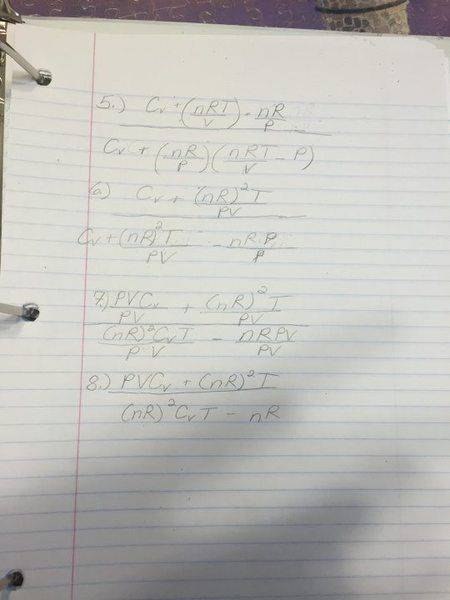 5.) Cv + (nRT/V) · nR/P
Cv + (nR/P)(nRT/V - P)
6) Cv + (nR)²T/PV
Cv + (nR)²T/PV - nR·P/P
7.) PVCv/PV + (nR)²T/PV
(nR)²CvT/P·V - nRPV/PV
8.) PVCv + (nR)²T
(nR)²CvT - nR